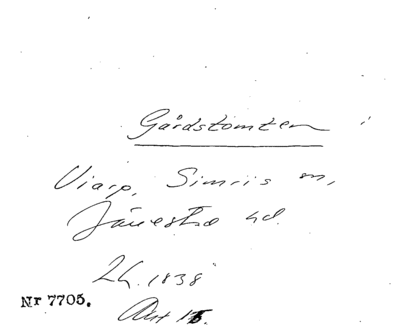 Gårdstomten i
Viarp, Simris sn,
Järrestad hd.
LH. 1838
Nr 7705.
Akt 15.